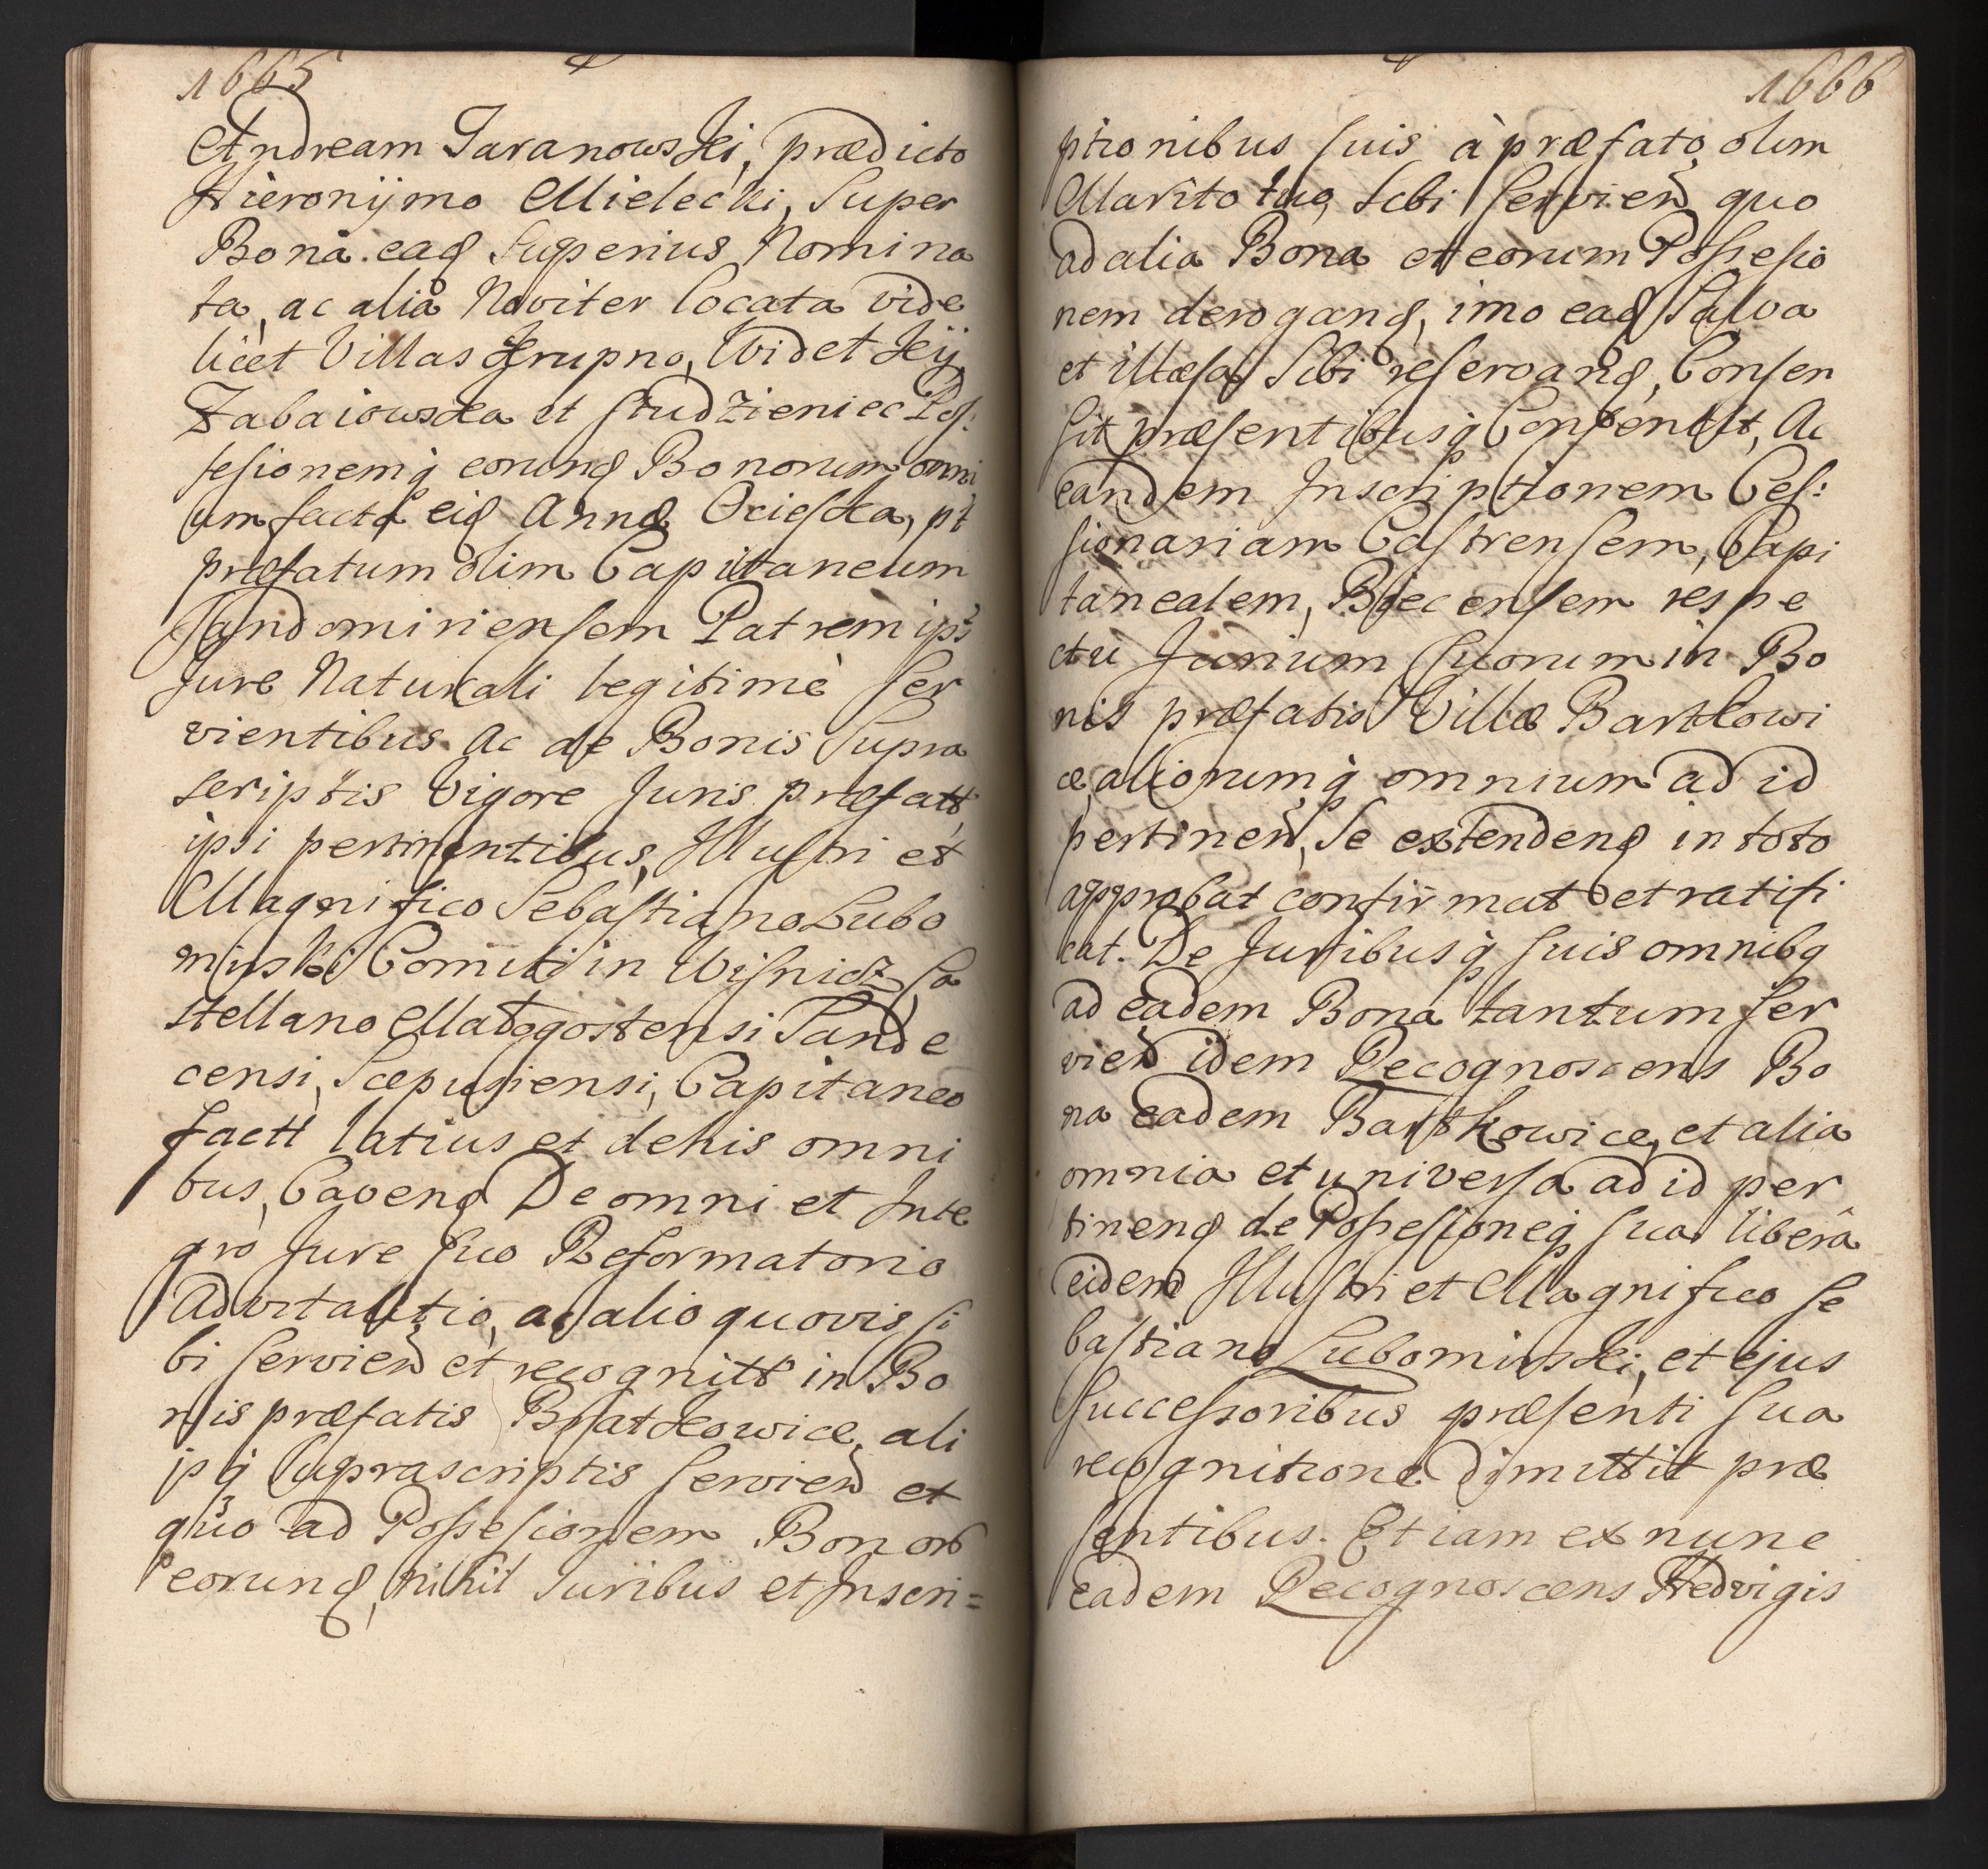 1665
Andream Taranowski, prædicto
Hieronijmo Mielecki, Super
Bona eaq Superius Nomina
ta, ac alia Noviter locata vide
licet Villas Krupno, Widetkij
Zabaiowska et Studzieniec Pos:
sesionemq eorunq Bonorum omni
um facta eiq Annæ Ociesska, pt
præfatum olim Capitaneum
Sandomiriensem Patrem ips
Jure Naturali legitimè Ser
vientibus Ac de Bonis Supra
scriptis Vigore Juris præfatt
ipsi pertinentibus, Illustri et
Magnifico Sebastiano Lubo
mirski Comiti in Wisnicz, Ca
stellano Malogostensi Sande
censi, Scepusiensi, Capitaneo
factt latius et de his omni
bus, Cavenq De omni et Inte
gro Jure Suo Reformatorio
Advitalitio, ac alio quovis si
bi servien et recognitt in Bo
nis præfatis Bratkowice, ali
isq Suprascriptis servien et
quo ad Possesionem Bonor
eorunq, nihil Juribus et Inscri=
1666
ptionibus suis à præfato olim
Marito suo, Sibi servien quo
ad alia Bona et eorum Possesio
nem deroganq, imo eaq Salva
et illæsa Sibi reservanq, Consen
sit præsentibusq Consentit, Ac
eandem Inscriptionem Ces:
sionariam Castrensem, Capi
tanealem, Biecensem respe
ctu Jurium Suorum in Bo
nis præfatis Villæ Bartkowi
ce, aliorumq omnium ad id
pertinen, Se extendenq in toto
approbat confirmat et ratifi
cat. De Juribusq suis omnibq
ad eadem Bona tantum ser
vien idem Recognoscens Bo
na eadem Bartkowice, et alia
omnia et universa ad id per
tinenq de Possesioneq sua libera
eidem Illustri et Magnifico Se
bastiano Lubomirski, et ejus
Successoribus præsenti sua
recognitione dimittit præ
sentibus. Etiam ex nunc
eadem Recognoscens Hedvigis